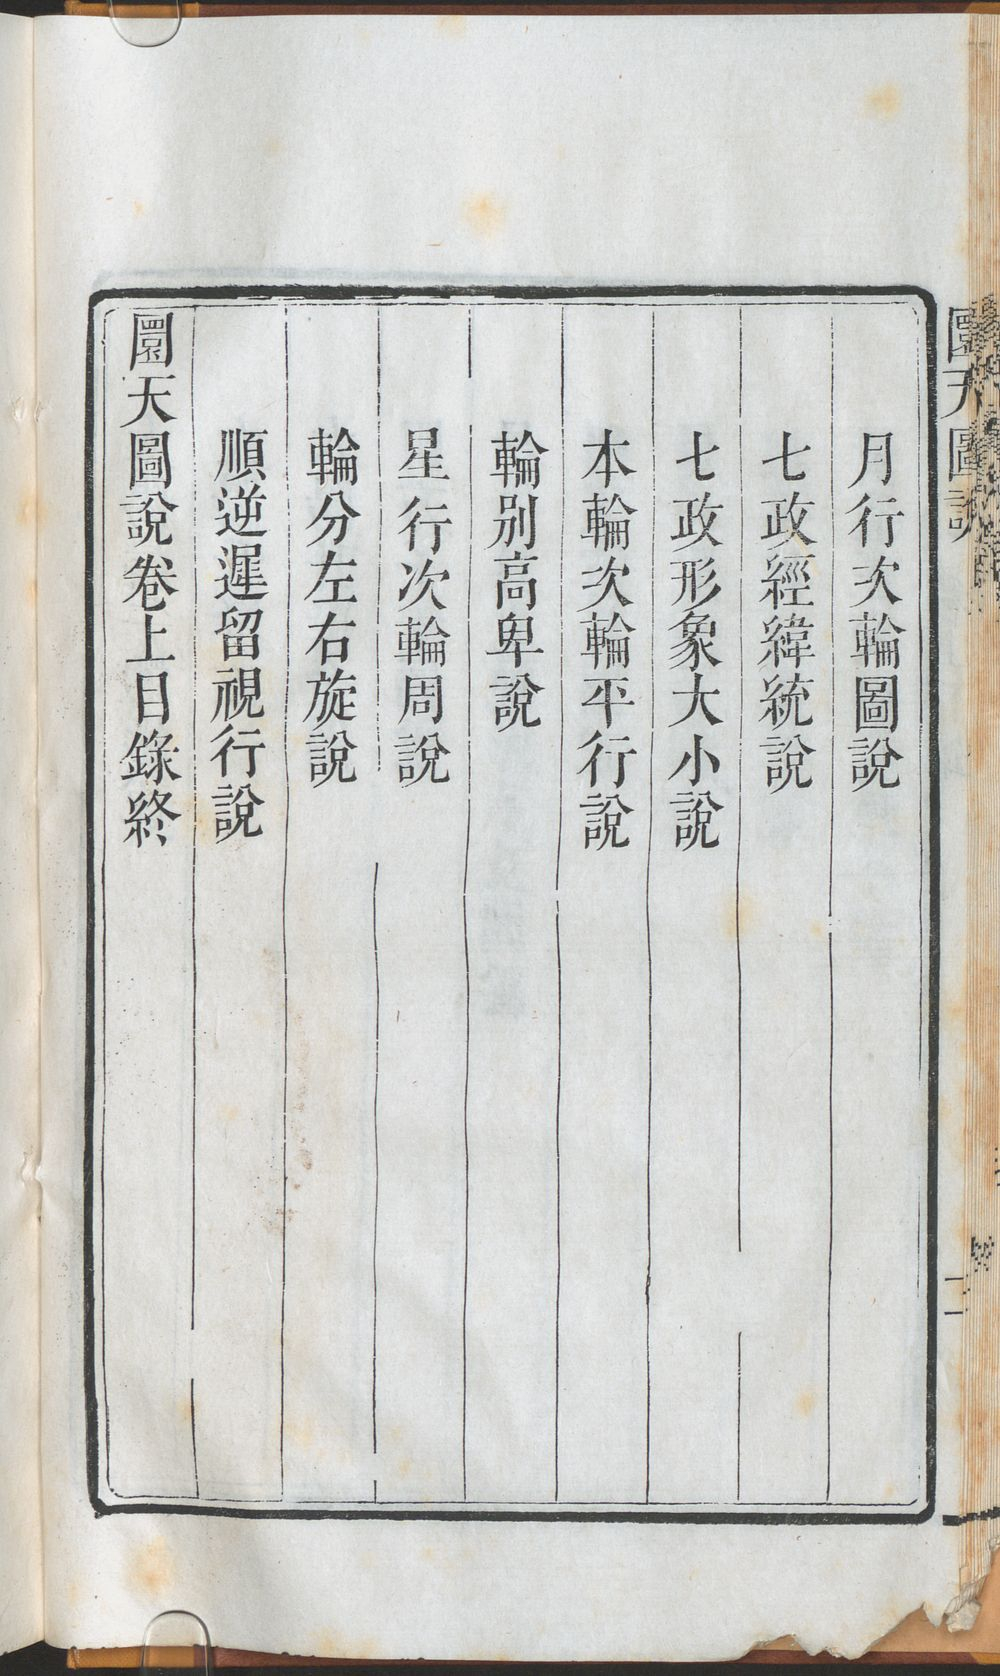 圜天圖說
二
月行次輪圖說
七政經緯統說
七政形象大小說
本輪次輪平行說
輪別高卑說
星行次輪周說
輪分左右旋說
順逆遲留視行說
圜天圖說卷上目錄終